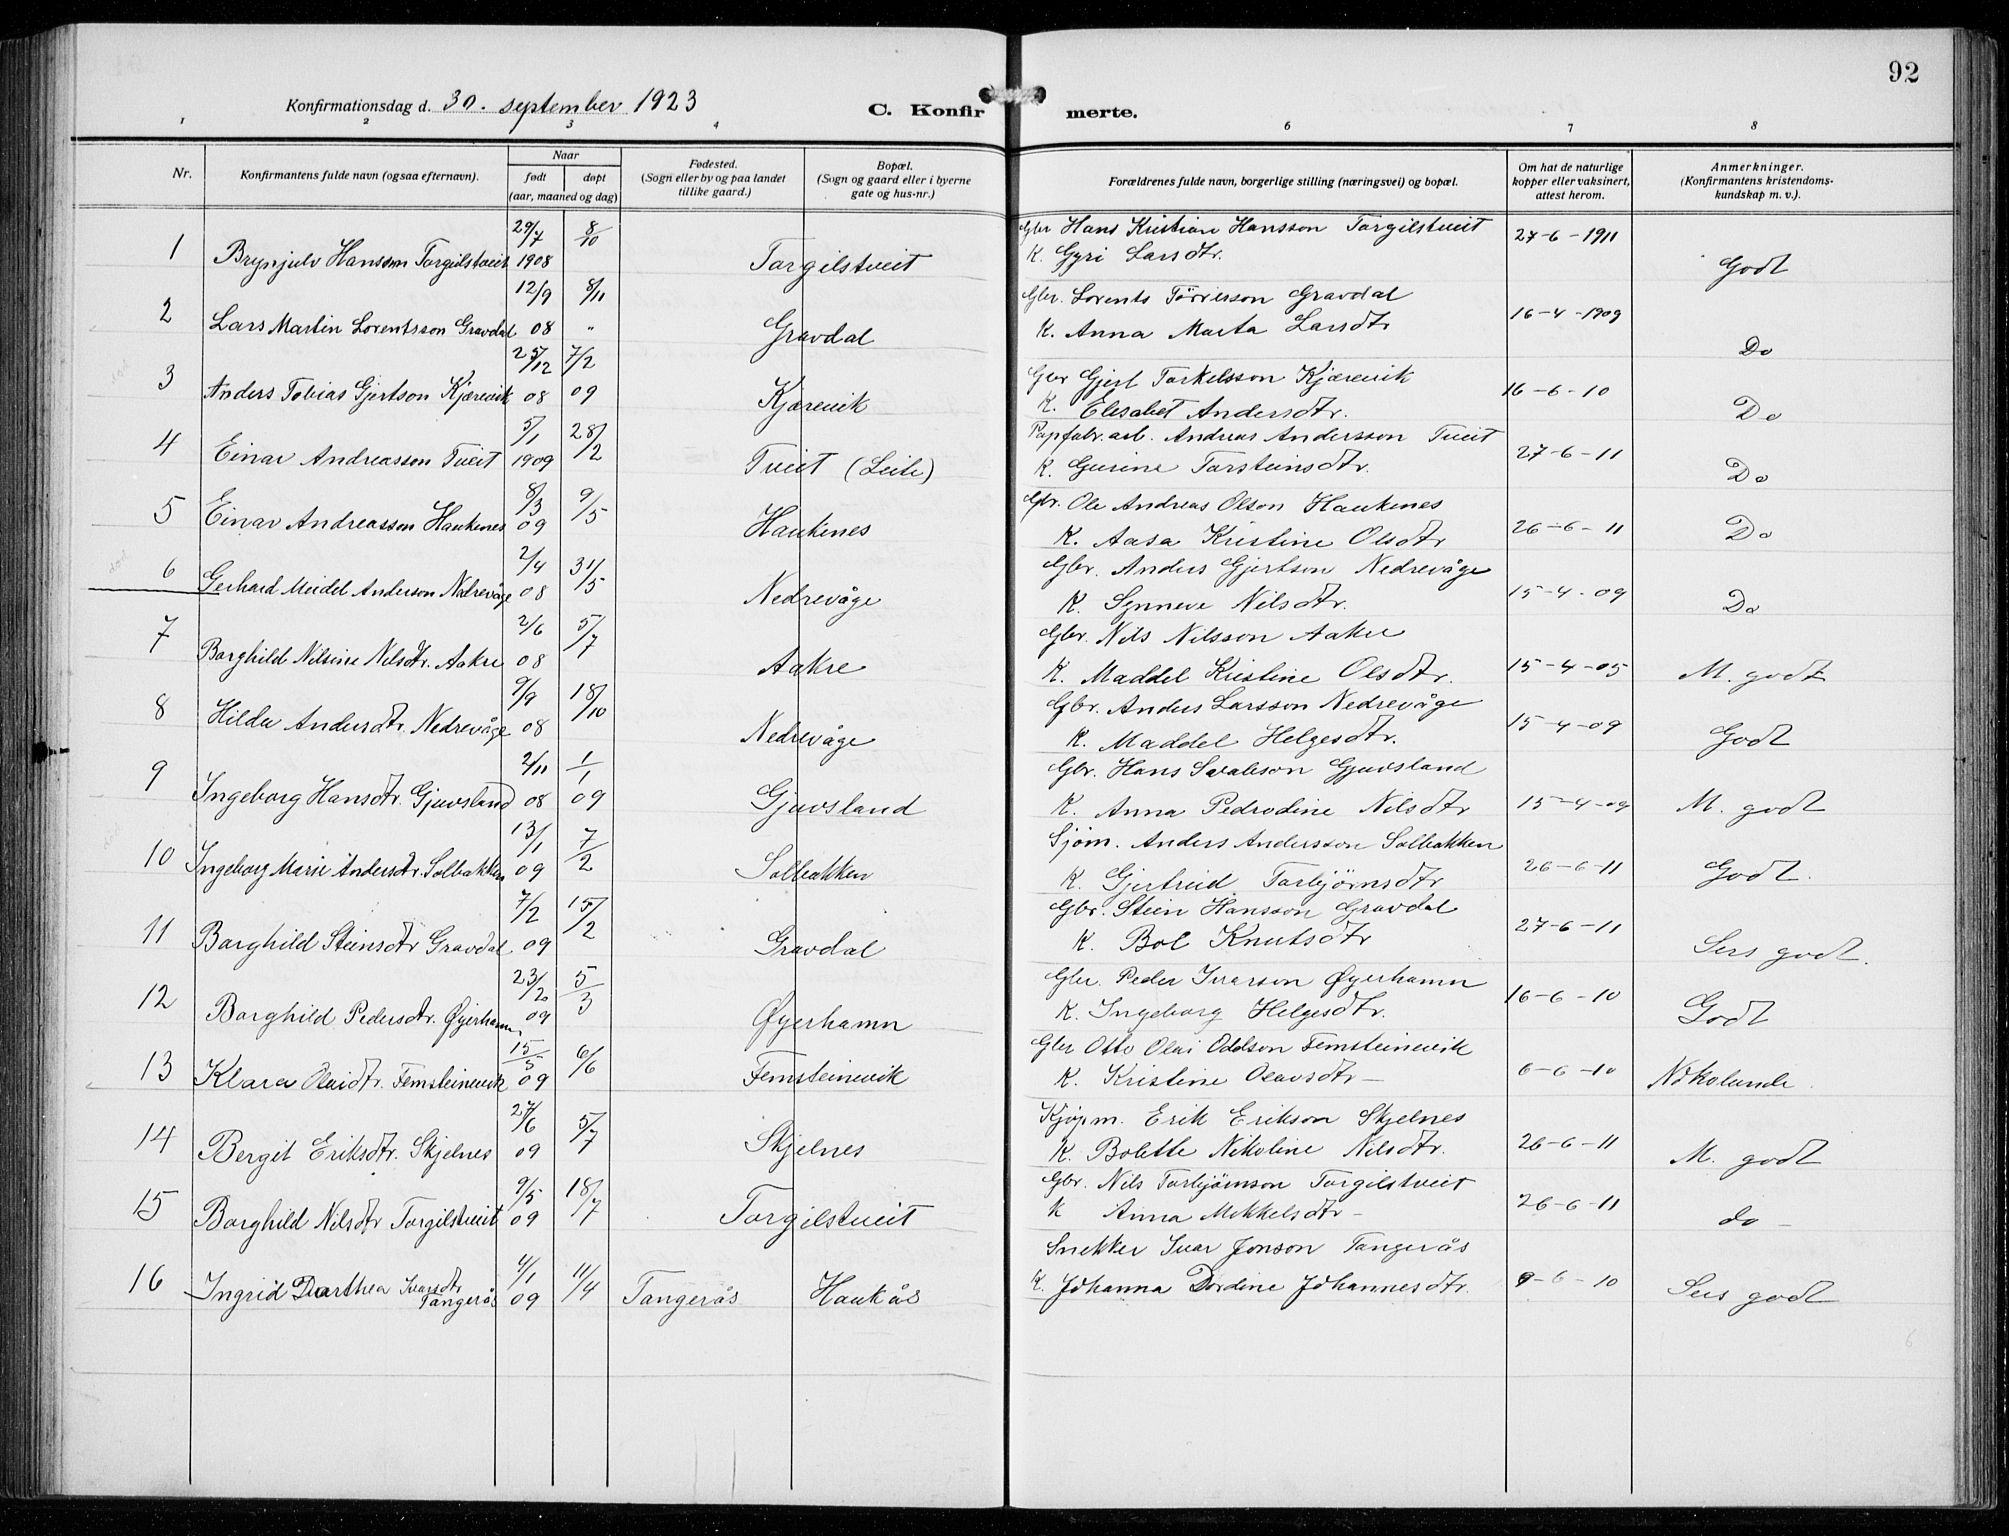 92
Konfirmationsdag d. 30. september 1923
C. Konfirmerte.
1 2 3 4 6 7 8
Nr.
Konfirmantens fulde navn (ogsaa efternavn).
Naar
født døpt
(aar, maaned og dag)
Fødested.
(Sogn eller by og paa landet
tillike gaard.)
Bopæl.
(Sogn og gaard eller i byerne
gate og hus-nr.)
Forældrenes fulde navn, borgerlige stilling (næringsvei) og bopæl.
Om hat de naturlige
kopper eller vaksinert,
attest herom.
Anmerkninger.
(Konfirmantens kristendoms-
kundskap m. v.).
29/7 8/10 Gbr Hans Kristian Hansson Torgilstveit 27-6-1911
1 Brynjulv Hansson Torgilstveit 1908 Torgilstveit K. Gyri Larsdtr. Godt
12/9 8/11 Gbr. Lorents Tørrisson Gravdal 16-4-1909
2 Lars Martin Lorentsson Gravdal 08 " Gravdal K. Anna Marta Larsdtr Do
25/12 7/2 Gbr Gjert Torkelsson Kjærevik 16-6-10
3 Anders Tobias Gjertson Kjærevik 08 09 Kjærevik K. Elisabet Andersdtr. Do
5/1 28/2 Papfabr. arb. Andreas Andersson Tveit 27-6-11
4 Einar Andreasson Tveit 1909 Tveit (Leite) K. Gurine Torsteinsdtr. Do
8/3 9/5 Gbr. Ole Andreas Olson Haukenes
5 Einar Andreasson Haukenes 09 Haukenes K. Aasa Kristine Olsdtr 26-6-11 Do
2/4 31/5 Gbr. Anders Gjertson Nedrevåge
6 Gerhard Meidel Anderson Nedrevåge 08 Nedrevåge K. Synneve Nilsdtr. 15-4-09 Do
2/6 5/7 Gbr. Nils Nilsson Aakre
7 Borghild Nilsine Nilsdtr. Aakre 08 Aakre K. Maddel Kristine Olsdtr. 15-4-05 M. godt
9/9 18/10 Gbr. Anders Larsson Nedrevåge
8 Hilda Andersdtr. Nedrevåge 08 Nedrevåge K. Maddel Helgesdtr. 15-4-09 Godt
2/11 1/1 Gbr. Hans Gjuvsland
9 Ingeborg Hansdtr. Gjuvsland 08 09 Gjuvsland K. Anna Pedrodine Nilsdtr 15-4-09 M. godt
13/1 7/2 Sjøm. Anders Andersson Solbakken
10 Ingeborg Marie Andersdtr. Solbakken 09 Solbakken K. Gjertreid Torbjørnsdtr 26-6-11 Godt.
7/2 15/2 Gbr. Stein Hansson Gravdal
11 Borghild Steinsdtr Gravdal 09 Gravdal K. Bol Knutsdtr 27-6-11 Sers godt.
23/20 5/3 Gbr. Peder Ivarson Øyerhamn
12 Borghild Pedersdtr. Øyerhamn 09 Øyerhamn K. Ingeborg Helgesdtr. 16-6-10 Godt
15/5 6/6 Gbr Otto Olai Oddson Femsteinevik
13 Klara Olaidtr. Femsteinevik 09 Femsteinevik K. Kristine Olavsdtr - 6-6-10 Nokolunde.
27/6 5/7 Kjøpm. Erik Erikson Skjelnes
14 Bergit Eriksdtr. Skjelnes 09 Skjelnes K. Bolette Nikoline Nilsdtr. 26-6-11 M. godt
9/5 18/7 Gbr. Nils Torbjørnson Torgilstveit
15 Borghild Nilsdtr Torgilstveit 09 Torgilstveit K Anna Mikkelsdtr - 26-6-11 do -
4/1 11/4 Snekker Ivar Jonson Tangerås
16 Ingrid Dorthea Ivarsdtr Tangerås 09 Tangerås Haukås K. Johanna Dordine Johannesdtr. 9-6-10 Sers godt